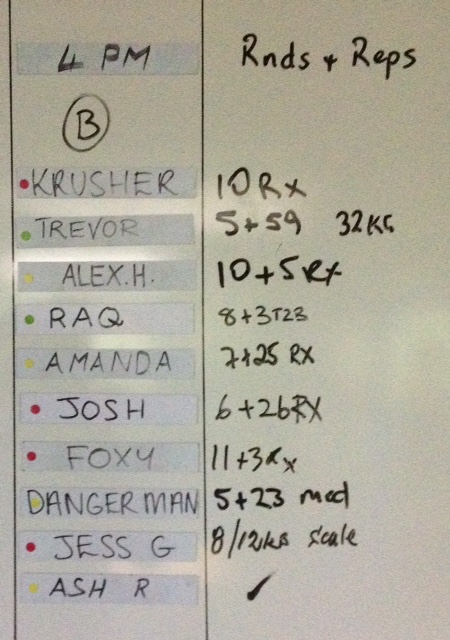 4 PM Rnds + Reps
B
KRUSHER 10 Rx
TREVOR 5+59 32KG
ALEX.H. 10+5 Rx
RAQ 8+3
AMANDA 7+25 RX
JOSH 6+26 RX
FOXY 11+3 Rx
DANGERMAN 5+23 med
JESS G 8/12KG scale
ASH R ✓